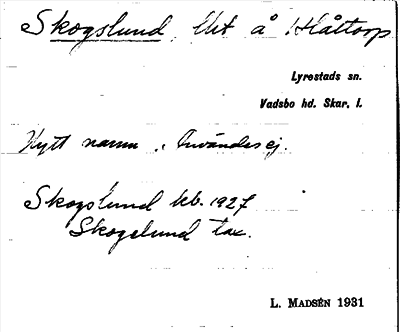 Skogslund, Ut å Hlåttorp
Lyrestads sn.
Vadsbo hd. Skar. l.
Nytt namn. Användes ej.
Skogslund kb. 1927
Skogslund tax.
L. MADSÉN 1931